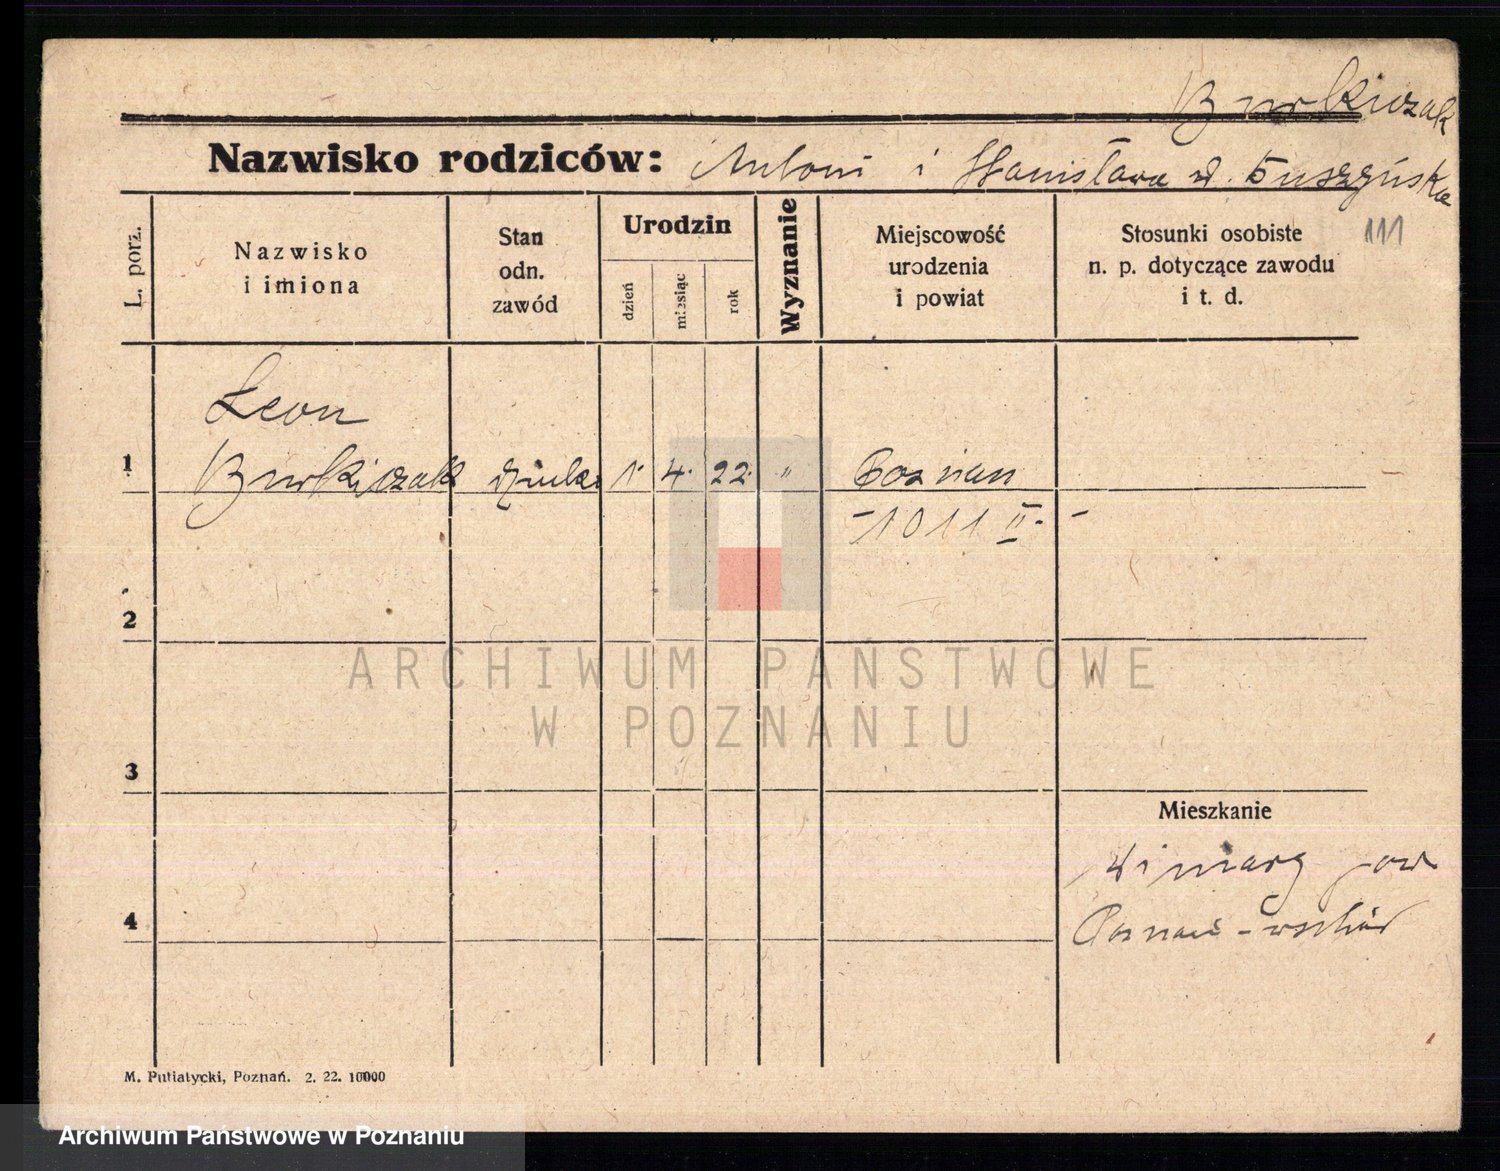 Burkiczak
Nazwisko rodziców: Antoni i Stanisława z
111
L. porz.
Nazwisko
i imiona
Stan
odn.
zawód
Urodzin
dzień
miesiąc
rok
Wyznanie
Miejscowość
urodzenia
i powiat
Stosunki osobiste
n. p. dotyczące zawodu
i t. d.
Leon
1 Burkiczak 1. 4. 22. " Poznań
-1011 II. -
2
ARCHIWUM PAŃSTWOWE
W POZNANIU
3
Mieszkanie
Winiary pow
4 Poznań-wschód
M. Putiatycki, Poznań. 2. 22. 10000
Archiwum Państwowe w Poznaniu